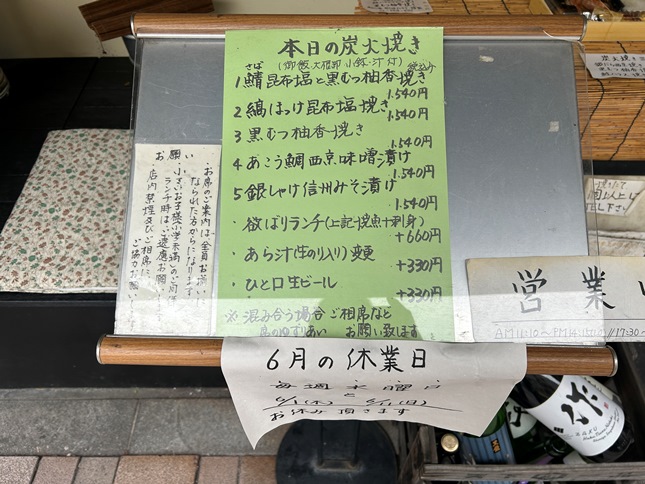 本日の炭火焼き
(御飯、大根卸、小鉢、汁付 税込み)
さば
1 鯖昆布塩と黒むつ柚香焼き
1.540円
2 縞ほっけ昆布塩焼き
1.540円
3 黒むつ柚香焼き
1.540円
4 あこう鯛西京味噌漬け
1.540円
5 銀しゃけ信州みそ漬け
1.540円
・欲ばりランチ(上記一焼魚+刺身)
+660円
・あら汁(生のり入り)変更
+330円
・ひと口生ビール
+330円
※混み合う場合ご相席など
席のゆずりあい お願い致します
お願い
・お席のご案内は全員お揃いに
なられた方からになります
・小さいお子様(小学未満)のご同伴
ランチ時はご遠慮お願い
店内禁煙及びご相席に
ご協力お願い
6月の休業日
毎週水曜日
と
お休み頂きます
営業
AM11:10〜PM14:15
17:30〜
炭火焼き
作